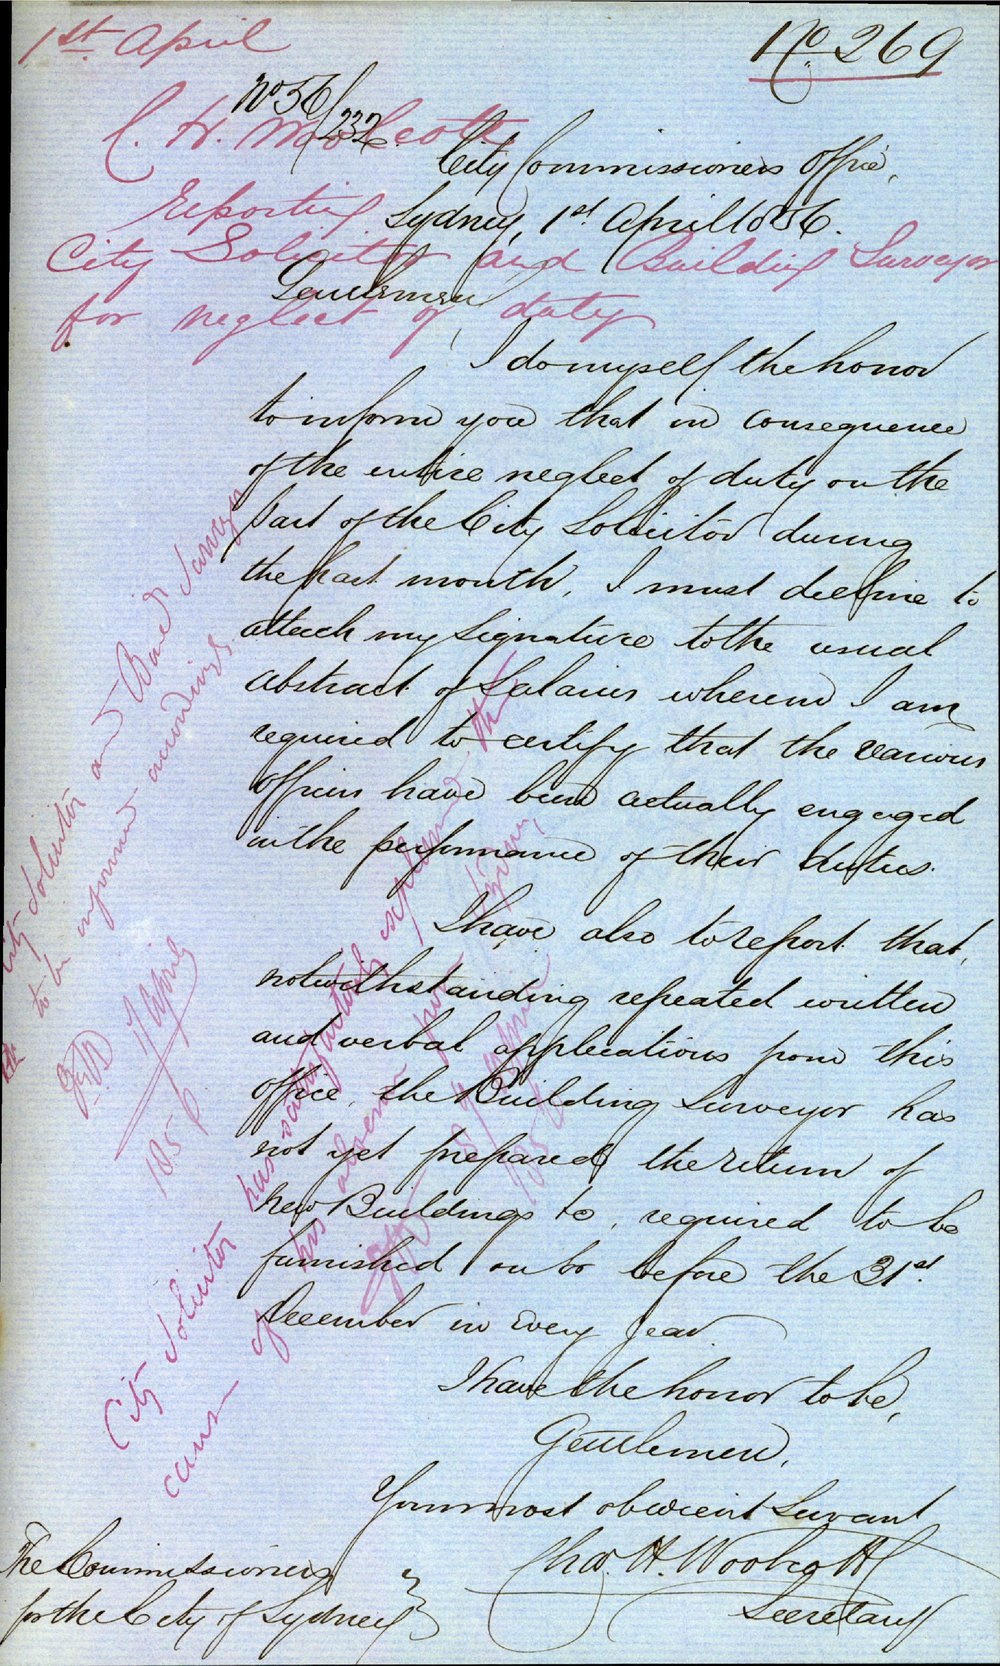 1st April
No 269
No 56/232
C. H. Woolcott
City Commissioners Office,
Reporting
Sydney, 1st April 1856.
City Solicitor and Building Surveyor
Gentlemen,
for neglect of duty
I do myself the honor
to inform you that in consequence
of the entire neglect of duty on the
part of the City Solicitor during
the past month, I must decline to
attach my signature to the usual
abstract of Salaries wherein I am
required to certify that the various
officers have been actually engaged
in the performance of their duties.
I have also to report that,
notwithstanding repeated written
and verbal applications from this
office, the Building Surveyor has
not yet prepared the return of
new Buildings &c, required to be
furnished on or before the 31st
December in every year.
I have the honor to be,
Gentlemen,
Your most obedient Servant
Chas. H. Woolcott
Secretary
The Commissioners
for the City of Sydney
City Solicitor and Surveyor
to be informed accordingly
7 April
1856
City Solicitor has satisfactorily explained the
cause of his absence